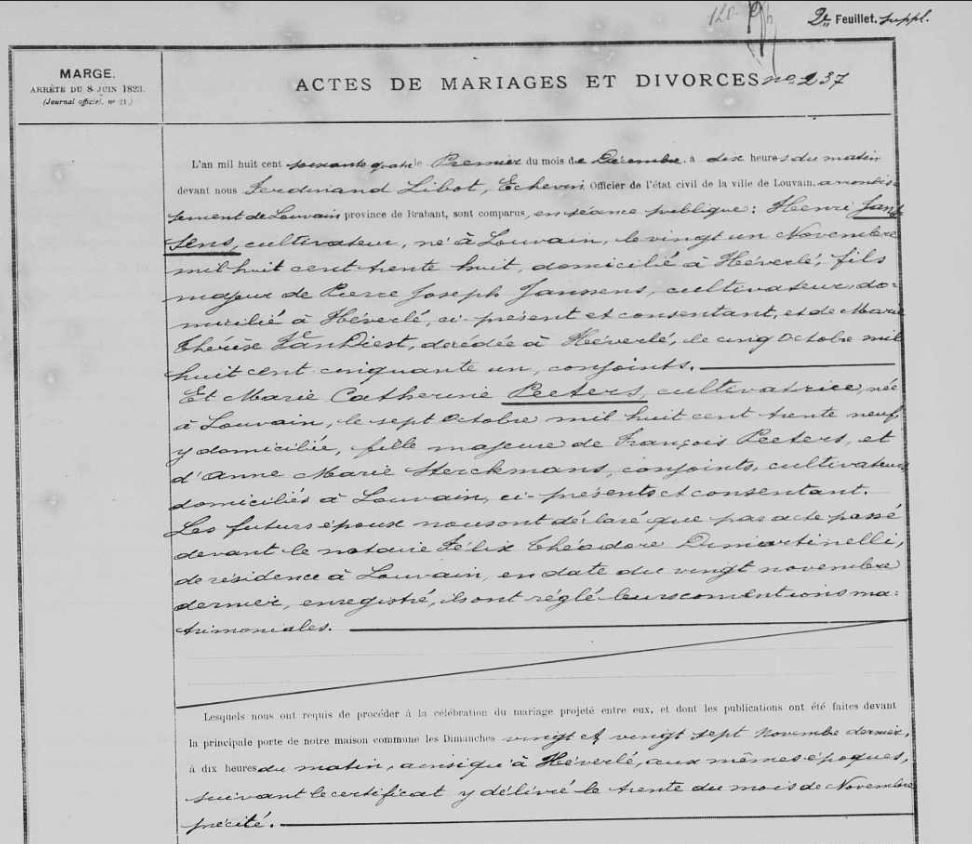 2e Feuillet. suppl.
MARGE.
ARRÊTÉ DU 8 JUIN 1823.
(Journal officiel, nº 21.)
ACTES DE MARIAGES ET DIVORCES no 237
L'an mil huit cent soixante quatre le Premier du mois de Décembre, à dix heures du matin
devant nous Ferdinand Libot, Echevin Officier de l'état civil de la ville de Louvain, arrondis-
sement de Louvain province de Brabant, sont comparus, en séance publique: Henri Jans-
sens, cultivateur, né à Louvain, le vingt un Novembre
mil huit cent trente huit, domicilié à Héverlé, fils
majeur de Pierre Joseph Janssens, cultivateur, do-
micilié à Héverlé, ci-présent et consentant, et de Marie
Thérèse VanDiest, décédée à Héverlé, le cinq Octobre mil
huit cent cinquante un, conjoints.
Et Marie Catherine Peeters, cultivatrice, née
à Louvain, le sept Octobre mil huit cent trente neuf,
y domiciliée, fille majeure de François Peeters, et
d'Anne Marie Sterckmans, conjoints, cultivateurs
domiciliés à Louvain, ci-présents et consentant.
Les futurs époux nous ont déclaré que par acte passé
devant le notaire Félix Théodore Dimartinelli,
de résidence à Louvain, en date du vingt novembre
dernier, enregistré, ils ont réglé leurs conventions ma-
trimoniales.
Lesquels nous ont requis de procéder à la célébration du mariage projeté entre eux, et dont les publications ont été faites devant
la principale porte de notre maison commune les Dimanches vingt et vingt sept Novembre dernier,
à dix heures du matin, ainsi qu'à Héverlé, aux mêmes époques,
suivant le certificat y délivré le trente du mois de Novembre
précité.